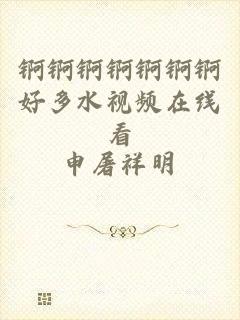 锕锕锕锕锕锕锕
好多水视频在线
看
申屠祥明